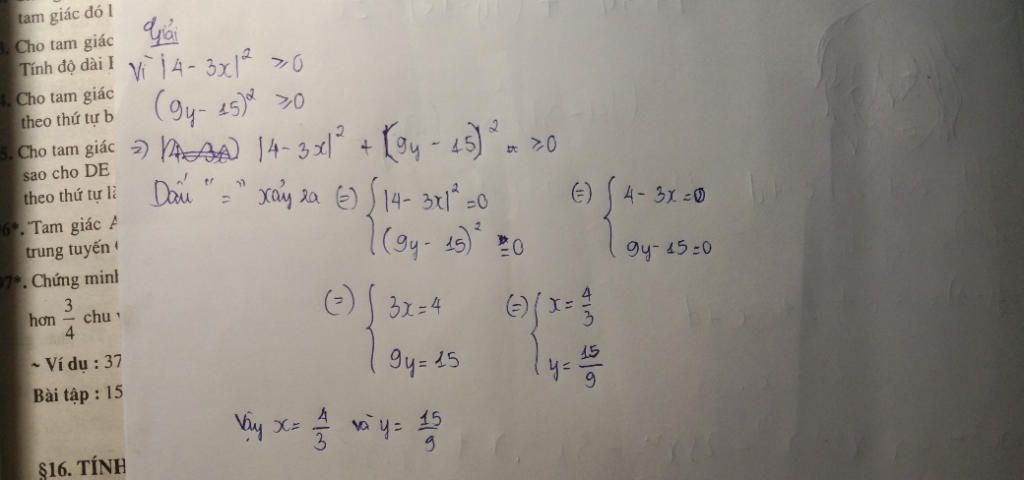 tam giác đó l
Cho tam giác
Tính độ dài
Cho tam giác
theo thứ tự b
5. Cho tam giác
sao cho DE
theo thứ tự là
6*. Tam giác A
trung tuyến
7*. Chứng minh
hơn 3/4 chu v
~ Ví dụ : 37
Bài tập : 15
§16. TÍNH
Giải
Vì |4 - 3x|² ≥ 0
(9y - 15)² ≥ 0
=> |4 - 3x|² + (9y - 15)² ≥ 0
Dấu "=" xảy ra (=) { |4 - 3x|² = 0 (=) { 4 - 3x = 0
(9y - 15)² = 0 9y - 15 = 0
(=) { 3x = 4 (=) { x = 4/3
9y = 15 y = 15/9
Vậy x = 4/3 và y = 15/9